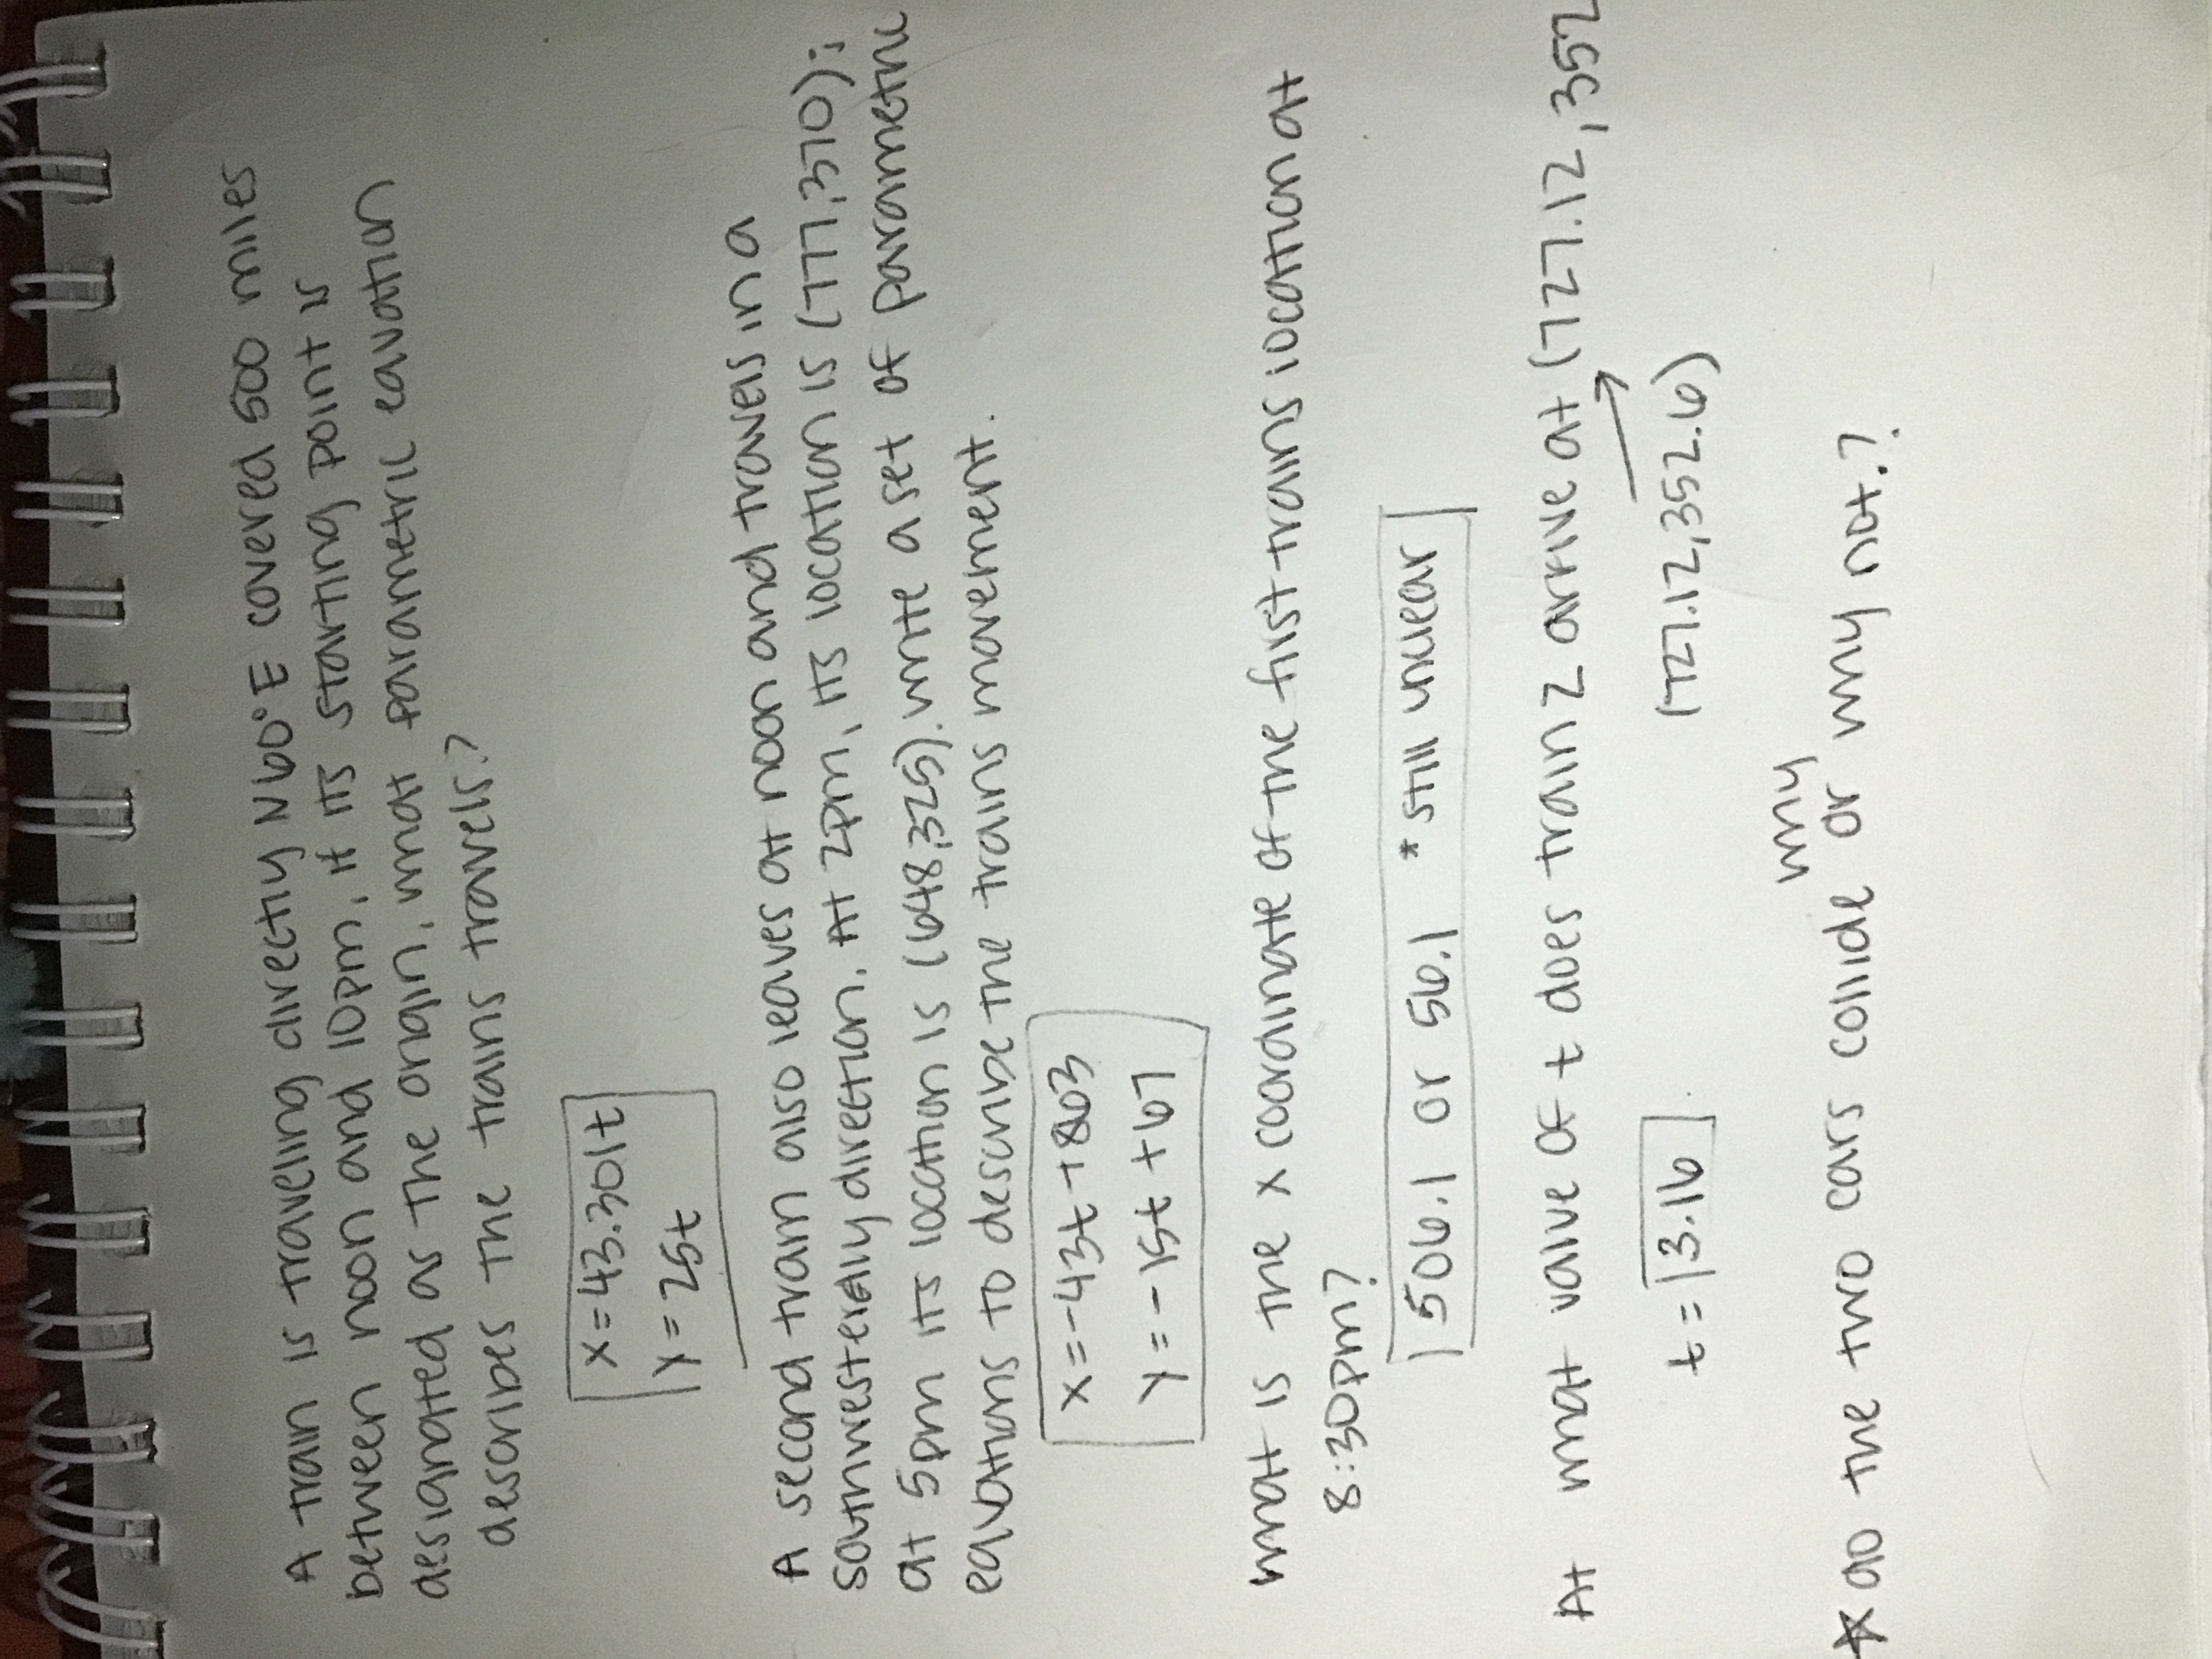 A train is traveling directly N60°E covered 500 miles
between noon and 10pm, it its starting point is
designated as the origin, what parametric equation
describes the trains travels?
x=43.301t
y=25t
A second train also leaves at noon and travels in a
southwesterally direction. At 2pm, its location is (777,370);
at 5pm its location is (648,325). write a set of parametric
equations to describe the trains movement.
x=-43t+863
y=-15t+67
what is the x coordinate of the first trains location at
8:30pm?
506.1 or 56.1 *still unclear
At what value of t does train 2 arrive at (727.12,352
t=3.16
(727.12,352.6)
why
*do the two cars collide or why not.?